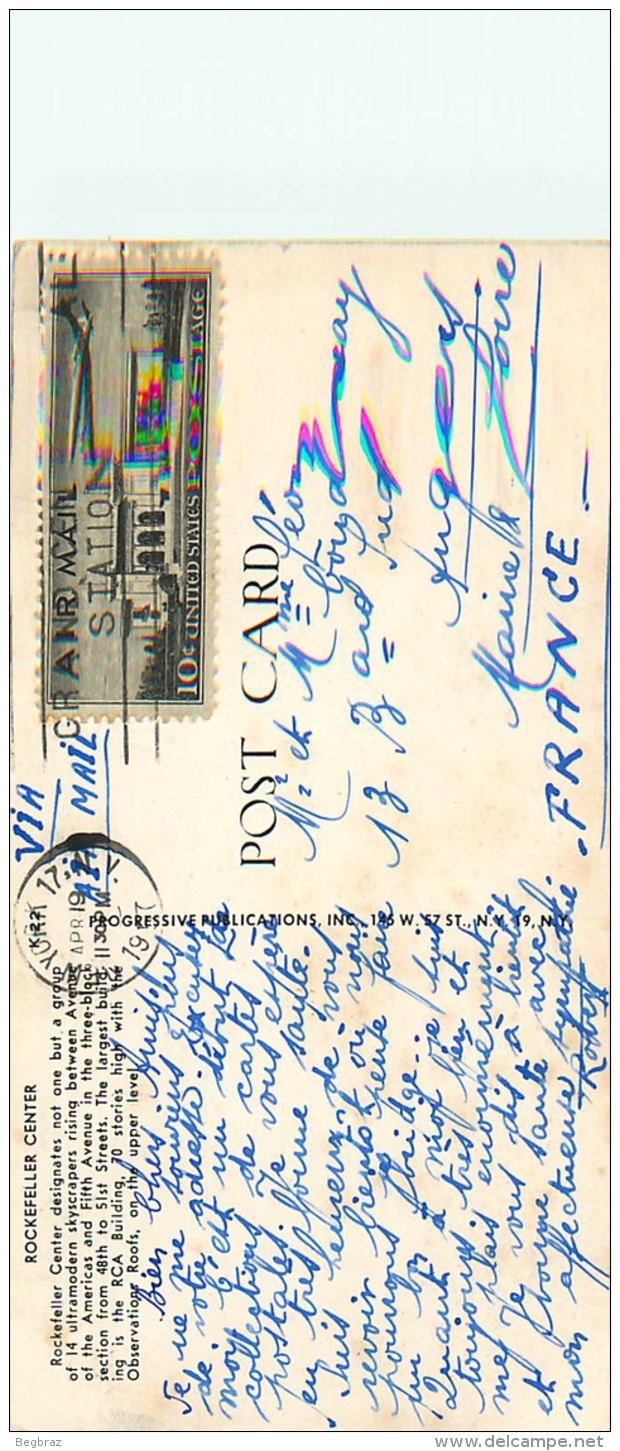 ROCKEFELLER CENTER
Rockefeller Center designates not one but a group
of 14 ultramodern skyscrapers rising between Avenue
of the Americas and Fifth Avenue in the three-block
section from 48th to 51st Streets. The largest build-
ing is the RCA Building, 70 stories high with the
Observations Roofs, on the upper level
Bien chers Amis,
Je ne me souviens plus
de votre adresse. Excusez
moi. C'est un début de
collections de cartes
postales. Je vous espère
en très bonne santé.
Suis heureux de vous
revoir bientôt où nous
pourrons peut-être faire
un bon bridge. Je suis
Quant à moi
toujours très bien et
me plais énormément.
Je vous dis à bientôt
et bonne santé avec
mon affectueuse sympathie.
Robert
PROGRESSIVE PUBLICATIONS, INC., 145 W. 57 ST., N.Y. 19, N.Y.
VIA
AIR MAIL
APR 19
11 30 PM
GRAND
STATION
10¢ UNITED STATES POSTAGE
POST CARD
Mr et Mme Léon
13 Bard Sud
Angers
Maine & Loire
FRANCE
Begbraz
delcampe.net